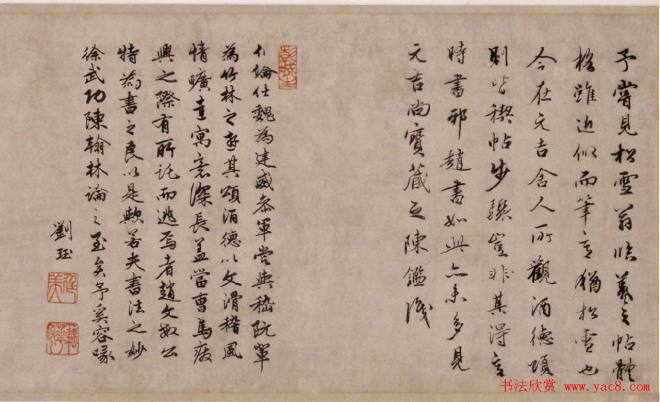 予嘗見松雪翁臨羲之帖體
格雖近似而筆意猶松雪也
今在元吉舍人所觀酒德頌
則皆稧帖步驟豈非其得意
時書邪趙書如此亦未多見
元吉尚寶藏之陳鑑識
伯倫仕魏為建威參軍嘗與嵇阮輩
為竹林之遊其頌酒德以文滑稽風
情曠達寓意深長蓋當曹馬廢
興之際有所託而逃焉者趙文敏公
特為書之良以是歟若夫書法之妙
徐武功陳翰林論之至矣予奚容喙
劉珏
书法欣赏 www.yac8.com